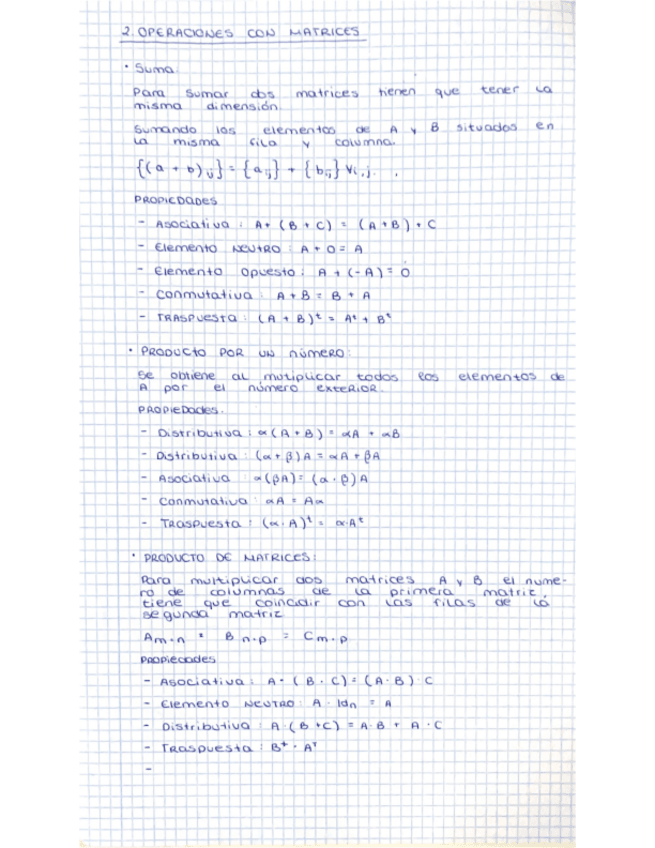 2. OPERACIONES CON MATRICES
• Suma.
Para sumar dos matrices tienen que tener la
misma dimensión.
Sumando los elementos de A y B situados en
la misma fila y columna.
{(a + b)ij} = {aij} + {bij} ∀i,j.
PROPIEDADES
- Asociativa : A+ (B + C) = (A + B) + C
- Elemento NEUTRO : A + 0 = A
- Elemento opuesto : A + (-A) = 0
- Conmutativa : A + B = B + A
- TRASPUESTA : (A + B)ᵗ = Aᵗ + Bᵗ
• PRODUCTO POR UN número:
se obtiene al mutiplicar todos los elementos de
A por el número exterior.
PROPIEDADES.
- Distributiva : α(A + B) = αA + αB
- Distributiva : (α + β)A = αA + βA
- Asociativa α(βA) = (α · β)A
- Conmutativa αA = Aα
- Traspuesta : (α · A)ᵗ = α·Aᵗ
• PRODUCTO DE MATRICES:
Para multiplicar dos matrices A y B el nume-
ro de columnas de la primera matriz,
tiene que coincidir con las filas de la
segunda matriz
Am·n · Bn·p = Cm·p
Propiedades
- Asociativa : A · (B · C) = (A · B) · C
- Elemento NEUTRO : A · Idn = A
- Distributiva : A · (B + C) = A·B + A · C
- Traspuesta : Bᵗ · Aᵗ
-